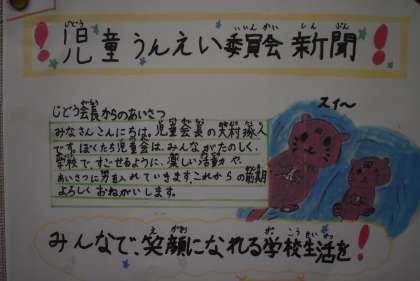 児童うんえい委員会新聞
じどう会長からのあいさつ
みなさんこんにちは、児童会長の
です。ぼくたち児童会は、みんながたのしく、
学校で、すごせるように、楽しい活動や、
あいさつに力を入れていきます。これからの前期
よろしくおねがいします。
スイ〜
みんなで、笑顔になれる学校生活を!